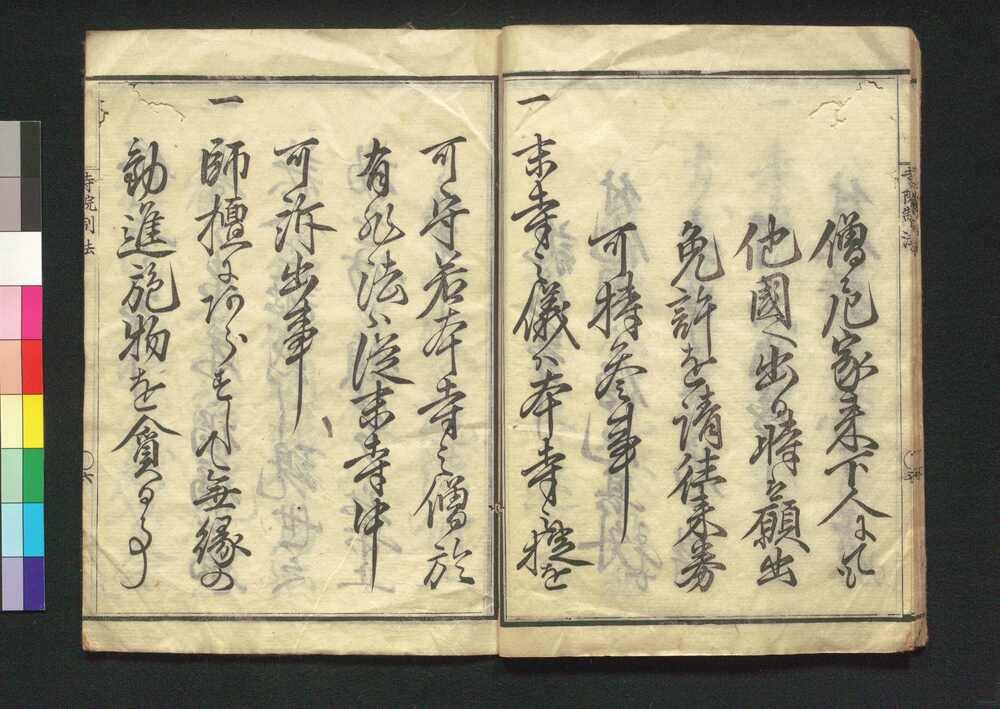 僧尼家来下人に
他國へ出る時ハ願出
免許を請往来券
可持参事
一
末寺之儀ハ本寺之掟を
可守若本寺之僧於
有非法ハ従末寺中
可訴出事
一
師檀にあらすして無縁の
勧進施物を貪る事
寺院制法
六